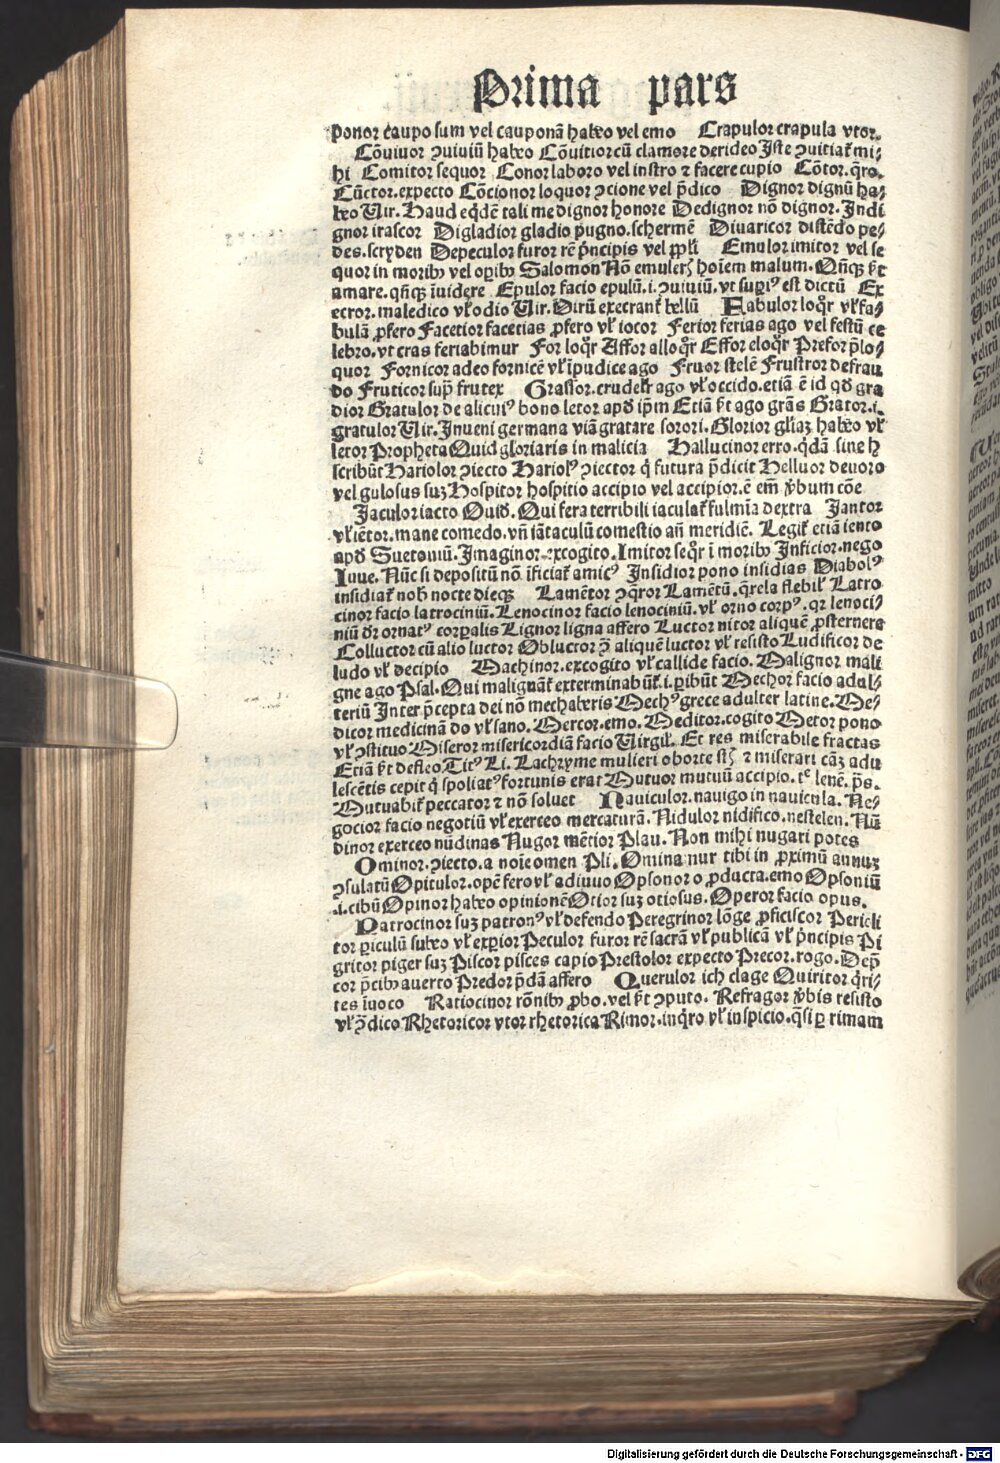 Prima pars
ponor caupo sum vel cauponā habeo vel emo Crapulor crapula vtor.
Cōviuor ꝯuiuiū habeo Cōuitior cū clamore derideo Iste ꝯuitiat᷑ mi⸗
hi Comitor sequor Conor laboro vel instro ⁊ facere cupio Cōtor. q̄ro.
Cūctor. expecto Cōcionor loquor ꝯcione vel p̄dico Dignor dignū ha⸗
beo Vir. Haud eqdē tali me dignor honore Dedignor nō dignor. Indi
gnor irascor Digladior gladio pugno. schermē Diuaricor distēdo pe⸗
des. scryden Depeculor furor rē p̄ncipis vel ppl̄i Emulor imitor vel se
quor in moribꝰ vel oꝑibꝰ Salomon Nō emulerꝭ hoīem malum. Qn̄qꝫ ꝓt
amare. qn̄qꝫ īuidere Epulor facio epulū. i. ꝯuiuiū. vt supiꝰ est dictū Ex
ecror. maledico vl̓ odio Vir. Dirū execrant᷑ bellū Fabulor loqr̄ vl̓ fa⸗
bulā ꝓfero Facetior facetias ꝓfero vl̓ iocor Ferior ferias ago vel festū ce
lebro. vt cras feriabimur For loqr̄ Affor alloqr̄ Effor eloqr̄ Prefor p̄lo⸗
quor Fornicor adeo fornicē vl̓ īpudice ago Fruor stelē Frustror defrau
do Fruticor sup̄ frutex Grassor. crudelr̄ ago vl̓ occido. etiā ē id qd̄ gra
dior Gratulor de alicuiꝰ bono letor apd̄ ip̄m Etiā ꝓt ago grās Grator. i.
gratulor Vir. Inueni germana viā gratare sorori. Glorior gl̓iaꝫ habeo vl̓
letor Propheta Quid gloriaris in malicia Hallucinor erro. qdā sine h
scribūt Hariolor ꝯiecto Hariolꝰ ꝯiector q̇ futura p̄dicit Helluor deuoro
vel gulosus suꝫ Hospitor hospitio accipio vel accipior. ē em̄ v̓bum cōe
Iaculor iacto Ouid. Qui fera terribili iaculat᷑ fulmīa dextra Iantor
vl̓ iētor. mane comedo. vn̄ iātaculū comestio an̄ meridiē. Legit᷑ etiā iento
apd̄ Suetoniū. Imaginor. excogito. Imitor seqr̄ ī moribꝰ Inficior. nego
Iuue. Nūc si depositū nō īficiat᷑ amicꝰ Insidior pono insidias Diabolꝰ
insidiat᷑ nob̄ nocte dieqꝫ Lamētor ꝯqror Lamētū. qrela flebil̓ Latro
cinor facio latrociniū. Lenocinor facio lenociniū. vl̓ orno corpꝰ. qꝛ lenoci⸗
niū dr̄ ornatꝰ corꝑalis Lignor ligna affero Luctor nitor aliquē ꝓsternere
Colluctor cū alio luctor Obluctor ꝯ̄ aliquē luctor vl̓ resisto Ludificor de
ludo vl̓ decipio Machinor. excogito vl̓ callide facio. Malignor mali
gne ago Psal. Qui malignāt᷑ exterminabūt᷑. i. ꝑibūt Mechor facio adul⸗
teriū Inter p̄cepta dei nō mechaberis Mechꝰ grece adulter latine. Me⸗
dicor medicinā do vl̓ sano. Mercor. emo. Meditor. cogito Metor pono
vl̓ ꝯstituo Miseror misericordiā facio Virgil̓. Et res miserabile fractas
Etiā ꝓt defleo. Titꝰ Li. Lachryme mulieri oborte st̄ ⁊ miserari cāꝫ adu
lescētis cepit q̇ spoliatꝰ fortunis erat Mutuor mutuū accipio. tᵉ lenē. p̄s.
Mutuabit᷑ peccator ⁊ nō soluet Nauiculor. nauigo in nauicula. Ne⸗
gocior facio negotiū vl̓ exerceo mercaturā. Nidulor nidifico. nestelen. Nū
dinor exerceo nūdinas Nugor mētior Plau. Non mihi nugari potes
Ominor. ꝯiecto. a noīe omen Pli. Ominanur tibi in ꝓximū annuꝫ
ꝯsulatū Opitulor. opē fero vl̓ adiuuo Opsonor o ꝓducta. emo Opsoniū
.i. cibū Opinor habeo opinionē Otior suꝫ otiosus. Operor facio opus.
Patrocinor suꝫ patronꝰ vl̓ defendo Peregrinor lōge ꝓficiscor Pericli
tor ꝑiculū subeo vl̓ exꝑior Peculor furor rē sacrā vl̓ publicā vl̓ p̄ncipis Pi
gritor piger suꝫ Piscor pisces capio Prestolor expecto Precor. rogo. Dep̄
cor p̄cibꝰ auerto Predor p̄dā affero Querulor ich clage Quiritor q̇ri⸗
tes īuoco Ratiocinor rōnibꝰ ꝓbo. vel ꝓt ꝯputo. Refragor v̓bis resisto
vl̓ ꝯ̄dico Rhetoricor vtor rhetorica Rimor. inqro vl̓ inspicio. qsi ꝑ rimam
Digitalisierung gefördert durch die Deutsche Forschungsgemeinschaft - DFG